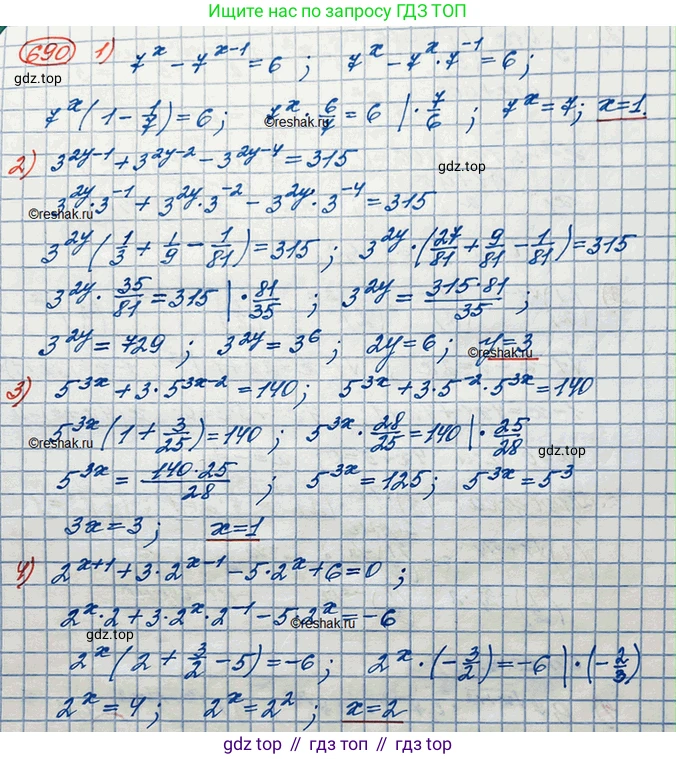 Ищите нас по запросу ГДЗ ТОП
690 1) 7^x - 7^{x-1} = 6 ; 7^x - 7^x · 7^{-1} = 6 ;
gdz.top
7^x (1 - 1/7) = 6 ; 7^x · 6/7 = 6 | · 7/6 ; 7^x = 7 ; x = 1.
©reshak.ru
2) 3^{2y-1} + 3^{2y-2} - 3^{2y-4} = 315
gdz.top
3^{2y} · 3^{-1} + 3^{2y} · 3^{-2} - 3^{2y} · 3^{-4} = 315
©reshak.ru
3^{2y} (1/3 + 1/9 - 1/81) = 315 ; 3^{2y} · (27/81 + 9/81 - 1/81) = 315
3^{2y} · 35/81 = 315 | · 81/35 ; 3^{2y} = 315·81/35 ;
3^{2y} = 729 ; 3^{2y} = 3^6 ; 2y = 6 ; y = 3
©reshak.ru
3) 5^{3x} + 3 · 5^{3x-2} = 140 ; 5^{3x} + 3 · 5^{-2} · 5^{3x} = 140
5^{3x} (1 + 3/25) = 140 ; 5^{3x} · 28/25 = 140 | · 25/28
©reshak.ru
gdz.top
5^{3x} = 140·25/28 ; 5^{3x} = 125 ; 5^{3x} = 5^3
3x = 3 ; x = 1
4) 2^{x+1} + 3 · 2^{x-1} - 5 · 2^x + 6 = 0 ;
2^x · 2 + 3 · 2^x · 2^{-1} - 5 · 2^x = -6
©reshak.ru
gdz.top
2^x (2 + 3/2 - 5) = -6 ; 2^x · (-3/2) = -6 | · (-2/3)
2^x = 4 ; 2^x = 2^2 ; x = 2
gdz.top // гдз.топ // gdz.top